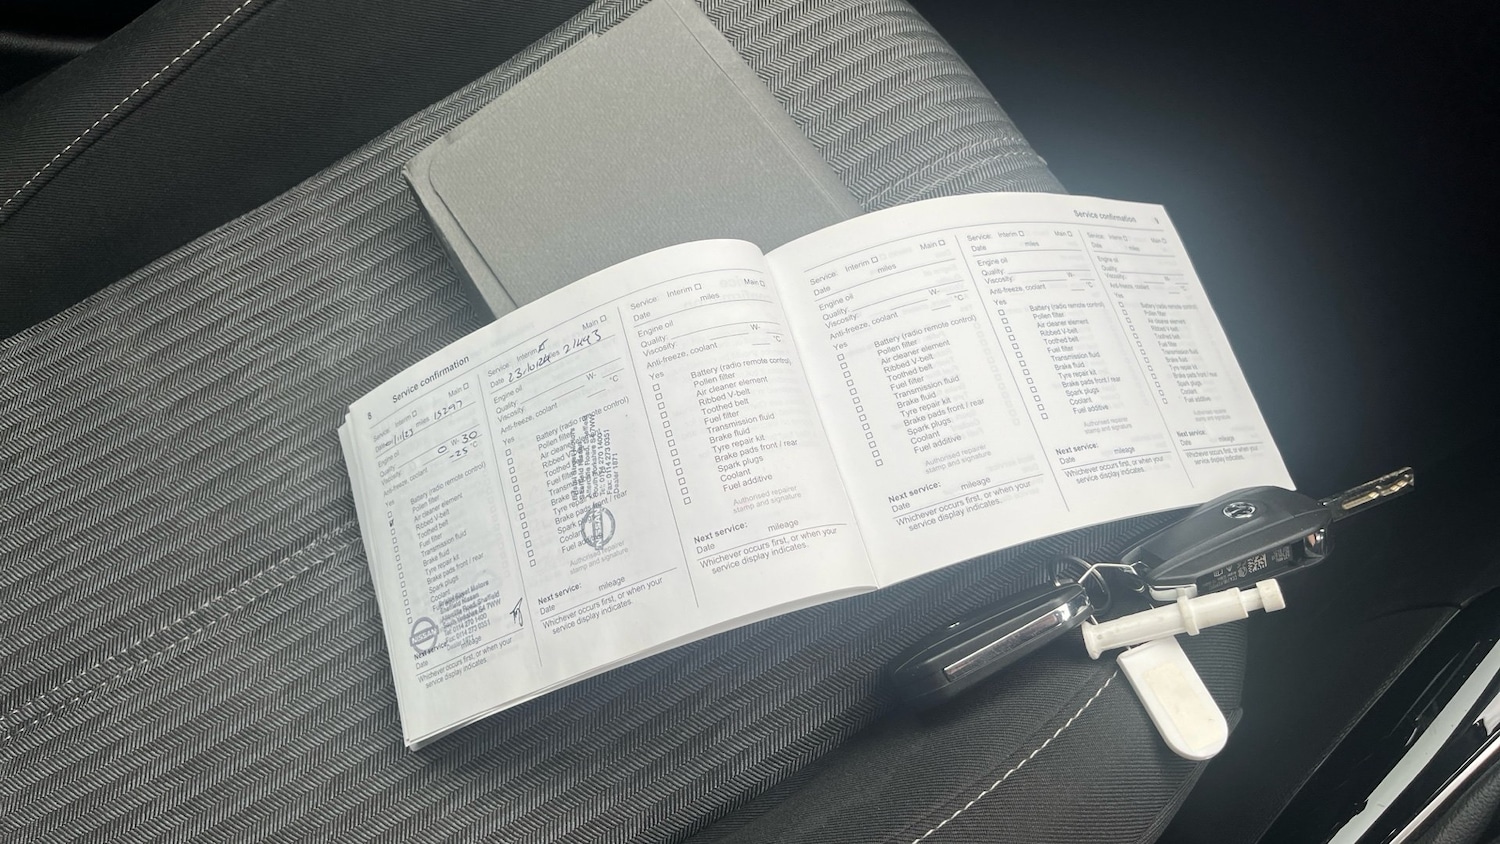 8 Service confirmation
Service: Interim Main
miles 15297
Engine oil
Quality: 0 W- 30
-25 °C
Anti-freeze, coolant
Yes
Battery (radio remote control)
Pollen filter
Air cleaner element
Ribbed V-belt
Toothed belt
Fuel filter
Transmission fluid
Brake fluid
Tyre repair kit
Brake pads front / rear
Spark plugs
Coolant
Sheffield Nissan
Tel: 0114 270 1400
Fax: 0114 273 0351
NISSAN
Next service:
mileage
Date
Whichever occurs first, or when your
service display indicates.
Service: Interim Main
Date 23/10/24 miles 21493
Engine oil
Quality: W-
Viscosity: °C
Anti-freeze, coolant
Yes
Battery (radio remote control)
Pollen filter
Air cleaner
Ribbed V-
Toothed
Fuel filter
Brake
Tyre repair
Brake pads / rear
Spark
Tel: 0114 270 1400
Fax: 0114 273 0351
Dealer 1871
NISSAN
Authorised repairer
stamp and signature
Next service:
Date mileage
Whichever occurs first, or when your
service display indicates.
Service: Interim Main
Date miles
Engine oil
Quality: W-
Viscosity: °C
Anti-freeze, coolant
Yes
Battery (radio remote control)
Pollen filter
Air cleaner element
Ribbed V-belt
Toothed belt
Fuel filter
Transmission fluid
Brake fluid
Tyre repair kit
Brake pads front / rear
Spark plugs
Coolant
Fuel additive
Authorised repairer
stamp and signature
Next service:
Date mileage
Whichever occurs first, or when your
service display indicates.
Service confirmation 9
Service: Interim Main
Date miles
Engine oil
Quality: W-
Viscosity: °C
Anti-freeze, coolant
Yes
Battery (radio remote control)
Pollen filter
Air cleaner element
Ribbed V-belt
Toothed belt
Fuel filter
Transmission fluid
Brake fluid
Tyre repair kit
Brake pads front / rear
Spark plugs
Coolant
Fuel additive
Authorised repairer
stamp and signature
Next service:
Date mileage
Whichever occurs first, or when your
service display indicates.
Service: Interim Main
Date miles
Engine oil
Quality: W-
Viscosity: °C
Anti-freeze, coolant
Yes
Battery (radio remote control)
Pollen filter
Air cleaner element
Ribbed V-belt
Toothed belt
Fuel filter
Transmission fluid
Brake fluid
Tyre repair kit
Brake pads front / rear
Spark plugs
Coolant
Fuel additive
Authorised repairer
stamp and signature
Next service:
Date mileage
Whichever occurs first, or when your
service display indicates.
Service: Interim Main
Date miles
Engine oil
Quality: W-
Viscosity: °C
Anti-freeze, coolant
Yes
Battery (radio remote control)
Pollen filter
Air cleaner element
Ribbed V-belt
Toothed belt
Fuel filter
Transmission fluid
Brake fluid
Tyre repair kit
Brake pads front / rear
Spark plugs
Coolant
Fuel additive
Authorised repairer
stamp and signature
Next service:
Date mileage
Whichever occurs first, or when your
service display indicates.